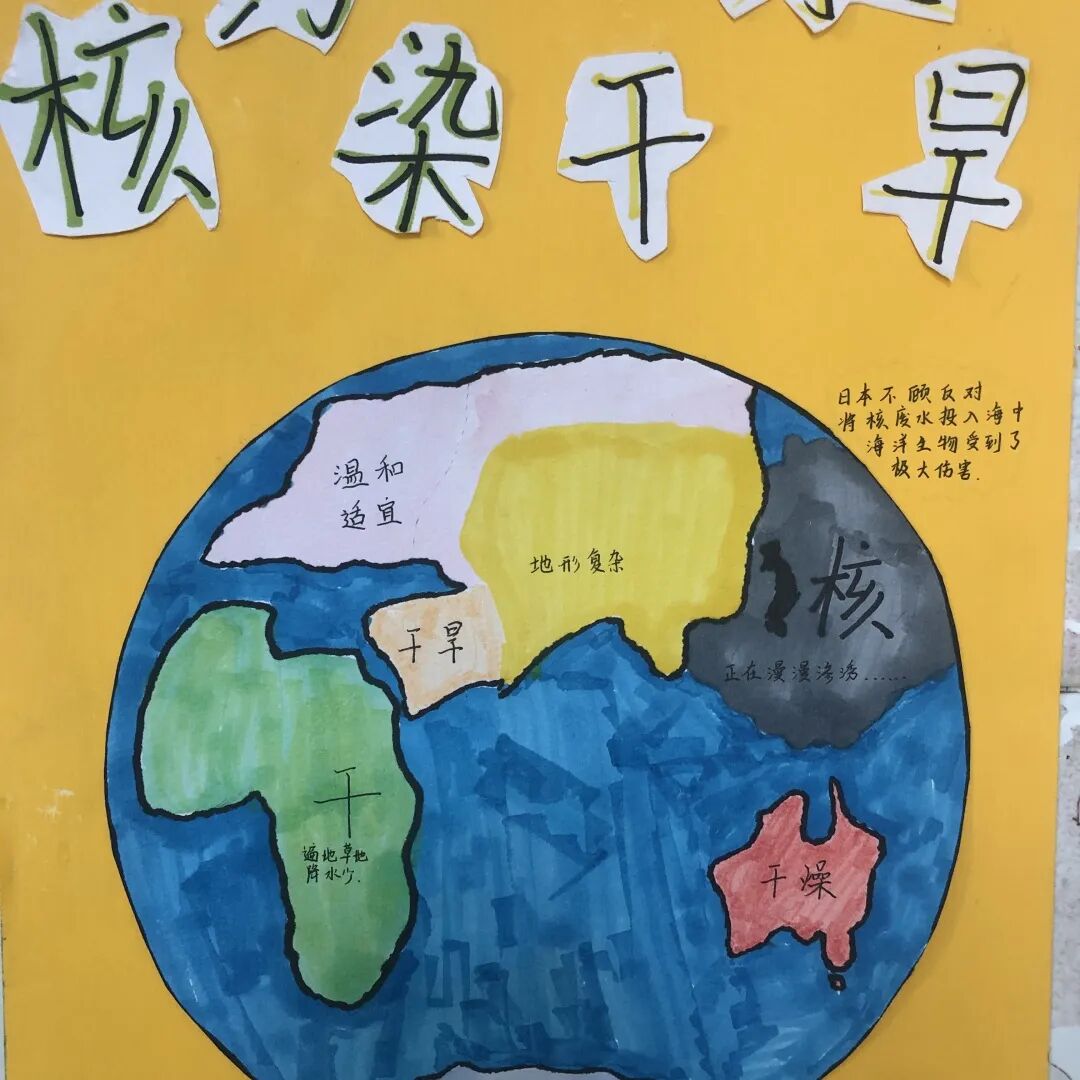 核 染 干 旱
日本不顾反对
将核废水投入海中
海洋生物受到了
极大伤害.
温和
适宜
地形复杂
干旱
核
正在漫漫渗透......
干
遍地草地
降水少.
干燥